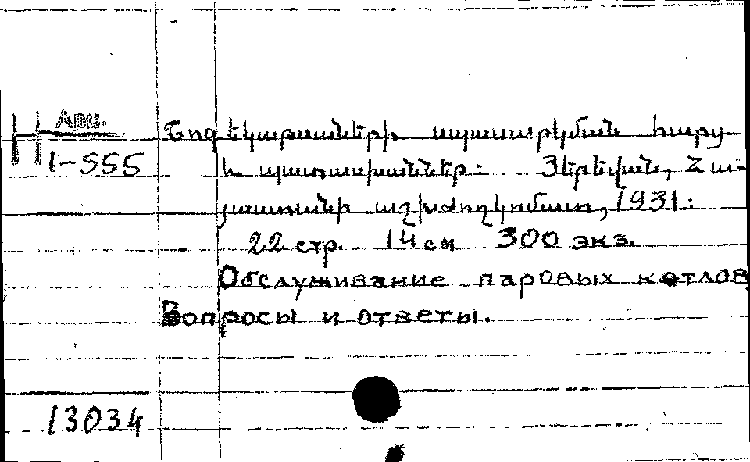 Арм.
H 1-555
Շոգեկաթսաների սպասարկման հարց
և պատասխաններ: Յերեվան, Հա-
յաստանի աշխժողկոմատ, 1931:
22 стр. 14 см 300 экз.
Обслуживание паровых котлов
Вопросы и ответы.
13034